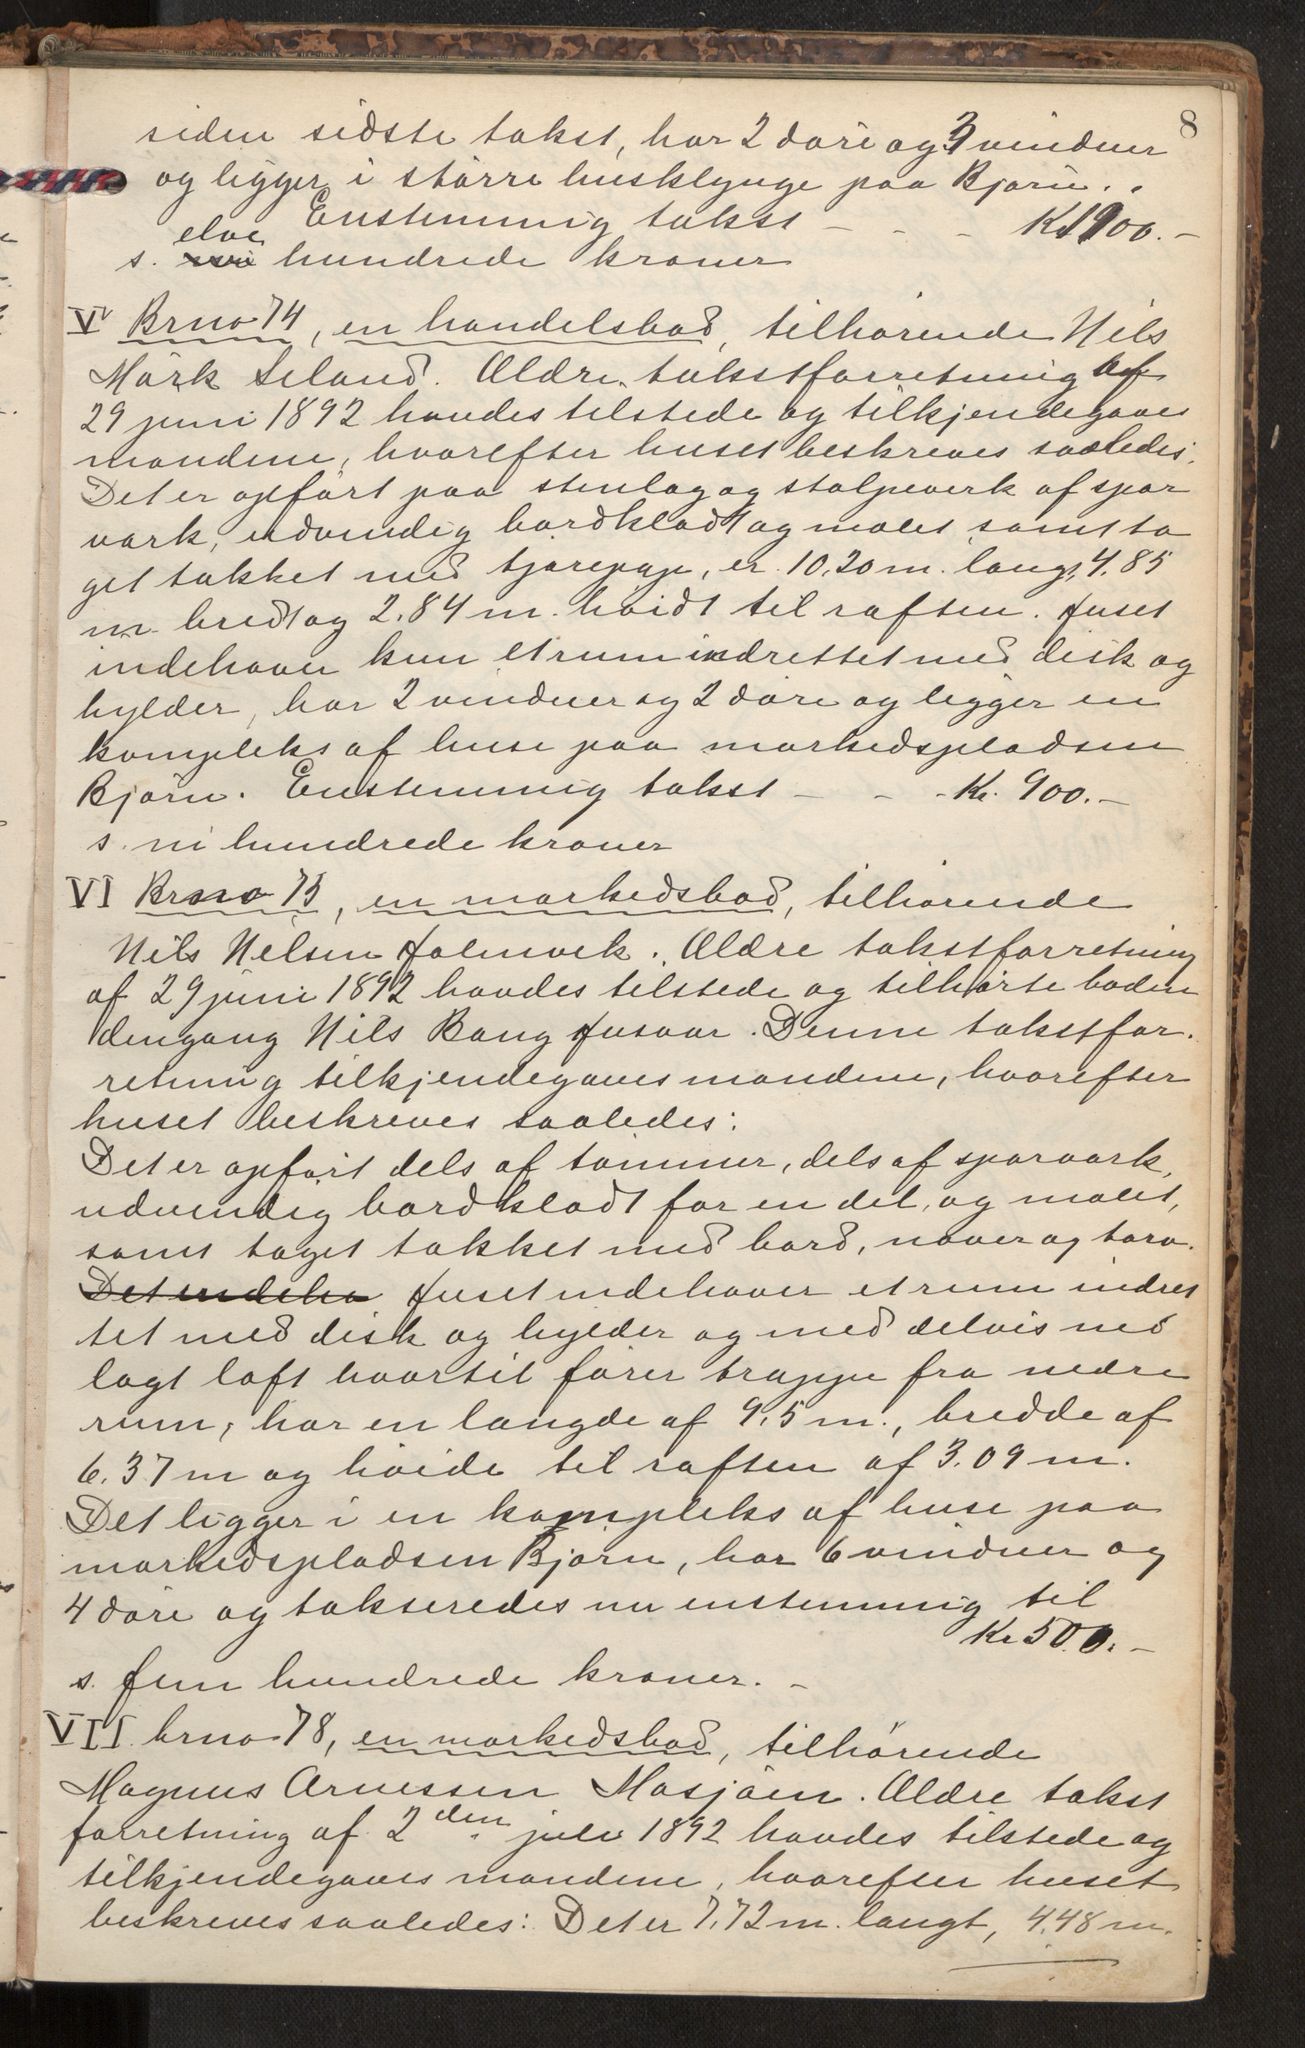 8
siden sidste takst, har 2 döre og 3 vinduer
og ligger i större husklynge paa Bjørn.
Enstemmig takst - - - Kr 1100.-
s. elve hundrede kroner
V Brno 74, en handelsbod, tilhørende Nils
Mörk Leland. Ældre takstforretning af
29 juni 1892 havdes tilstede og tilkjendegaves
mændene, hvorefter huset beskreves saaledes:
Det er opført paa stenlag og stolpeverk af spær
værk, udvendig bordklædt og malet samt ta
get tækket med tjærepap, er 10.20 m. langt, 4.85
m. bredt og 2.84 m. høidt til raften. Huset
indehaver kun et rum indrettet med disk og
hylder, har 2 vinduer og 2 døre og ligger en
kompleks af huse paa markedspladsen
Bjørn. Enstemmig takst - - - Kr. 900.-
s. ni hundrede kroner
VI Brno 75, en markedsbod, tilhørende
Nils Nelsen Holmvik. Ældre takstforretning
af 29 juni 1892 havdes tilstede og tilhørte boden
dengang Nils Bang Husvær. Denne takstfor.
retning tilkjendegaves mændene, hvorefter
huset beskreves saaledes:
Det er opført dels af tømmer, dels af spærværk,
udvendig bordklædt for en del, og malet,
samt taget tækket med bord, næver og torv.
Det indeha Huset indehaver et rum indret
tet med disk og hylder og med delvis ned
lagt loft hvortil fører trappe fra nedre
rum, har en længde af 9.5 m., bredde af
6.37 m og høide til raften af 3.09 m.
Det ligger i en kompleks af huse paa
markedspladsen Bjørn, har 6 vinduer og
4 døre og takseredes nu enstemmig til
Kr 500.-
s. fem hundrede kroner. -
VII brno 78, en markedsbod, tilhørende
Magnus Arnessen Mosjøen. Ældre takst
forretning af 2den juli 1892 havdes tilstede og
tilkjendegaves mændene, hvorefter huset
beskreves saaledes: Det er 7,72 m. langt, 4.48 m.